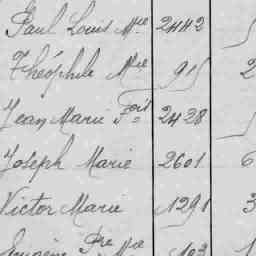 Paul Louis Mie 2442
Théophile Mie 915 2
Jean Marie Fois 2428
Joseph Marie 2601 6
Victor Marie 1291 3
Eugène Pre Mie 103 1